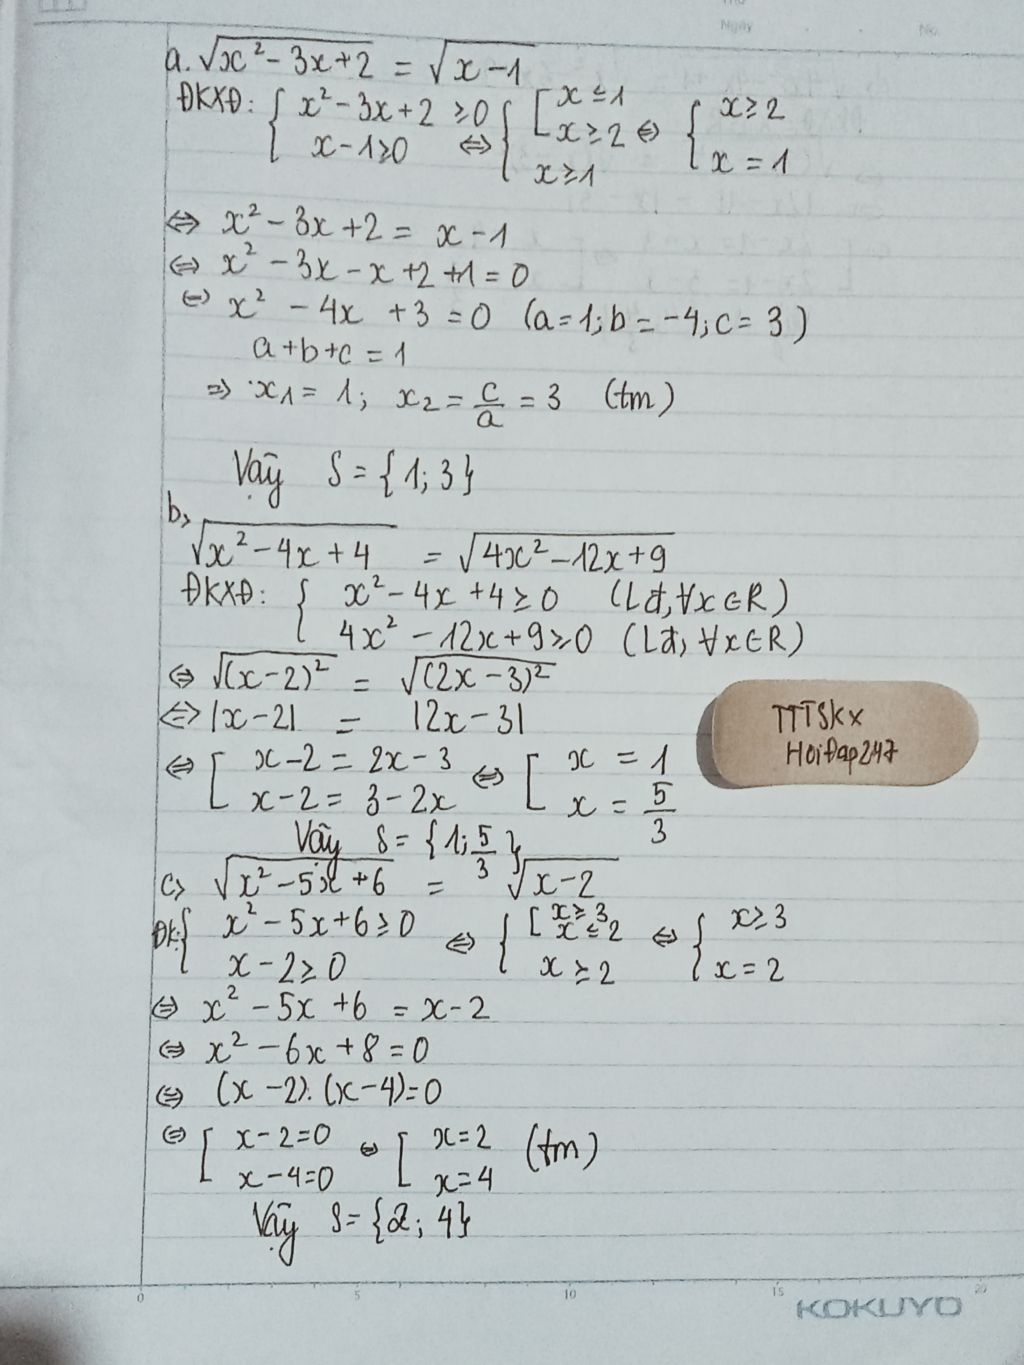 Thứ
Ngày
No.
a. √(x² - 3x + 2) = √(x - 1)
ĐKXĐ: { x² - 3x + 2 ≥ 0 ; x - 1 ≥ 0 ⇔ { [ x ≤ 1 ; x ≥ 2 ; x ≥ 1 ⇔ { x ≥ 2 ; x = 1
⇔ x² - 3x + 2 = x - 1
⇔ x² - 3x - x + 2 + 1 = 0
⇔ x² - 4x + 3 = 0 (a = 1; b = -4; c = 3)
a + b + c = 1
⇒ x₁ = 1; x₂ = c/a = 3 (tm)
Vậy S = {1; 3}
b,
√(x² - 4x + 4) = √(4x² - 12x + 9)
ĐKXĐ: { x² - 4x + 4 ≥ 0 (Lđ, ∀x ∈ R)
4x² - 12x + 9 ≥ 0 (Lđ, ∀x ∈ R)
⇔ √((x - 2)²) = √((2x - 3)²)
⇔ |x - 2| = |2x - 3|
TTTSkx
HoiĐap247
⇔ [ x - 2 = 2x - 3 ; x - 2 = 3 - 2x ⇔ [ x = 1 ; x = 5/3
Vậy S = {1; 5/3}
c, √(x² - 5x + 6) = √(x - 2)
ĐK: { x² - 5x + 6 ≥ 0 ; x - 2 ≥ 0 ⇔ { [ x ≥ 3 ; x ≤ 2 ; x ≥ 2 ⇔ { x ≥ 3 ; x = 2
⇔ x² - 5x + 6 = x - 2
⇔ x² - 6x + 8 = 0
⇔ (x - 2).(x - 4) = 0
⇔ [ x - 2 = 0 ; x - 4 = 0 ⇔ [ x = 2 ; x = 4 (tm)
Vậy S = {2; 4}
0 5 10 15 20
KOKUYO